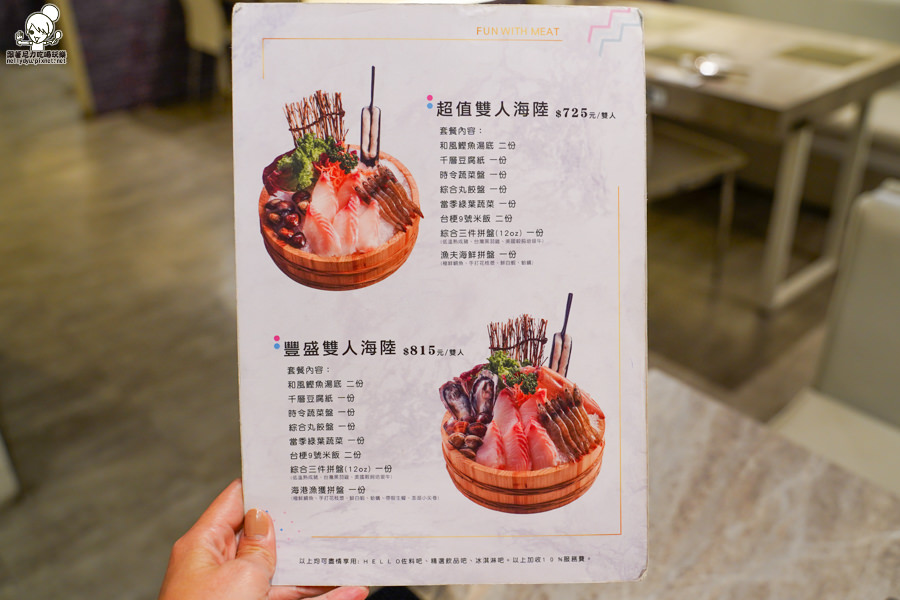 跟著尼力吃喝玩樂
nellydyu.pixnet.net
FUN WITH MEAT
超值雙人海陸 $725元/雙人
套餐內容：
和風鰹魚湯底 二份
千層豆腐紙 一份
時令蔬菜盤 一份
綜合丸餃盤 一份
當季綠葉蔬菜 一份
台梗9號米飯 二份
綜合三件拼盤(12oz) 一份
漁夫海鮮拼盤 一份
豐盛雙人海陸 $815元/雙人
套餐內容：
和風鰹魚湯底 二份
千層豆腐紙 一份
時令蔬菜盤 一份
綜合丸餃盤 一份
當季綠葉蔬菜 一份
台梗9號米飯 二份
綜合三件拼盤(12oz) 一份
海港漁獲拼盤 一份
以上均可盡情享用：HELLO佐料吧、精選飲品吧、冰淇淋吧。以上加收10%服務費。